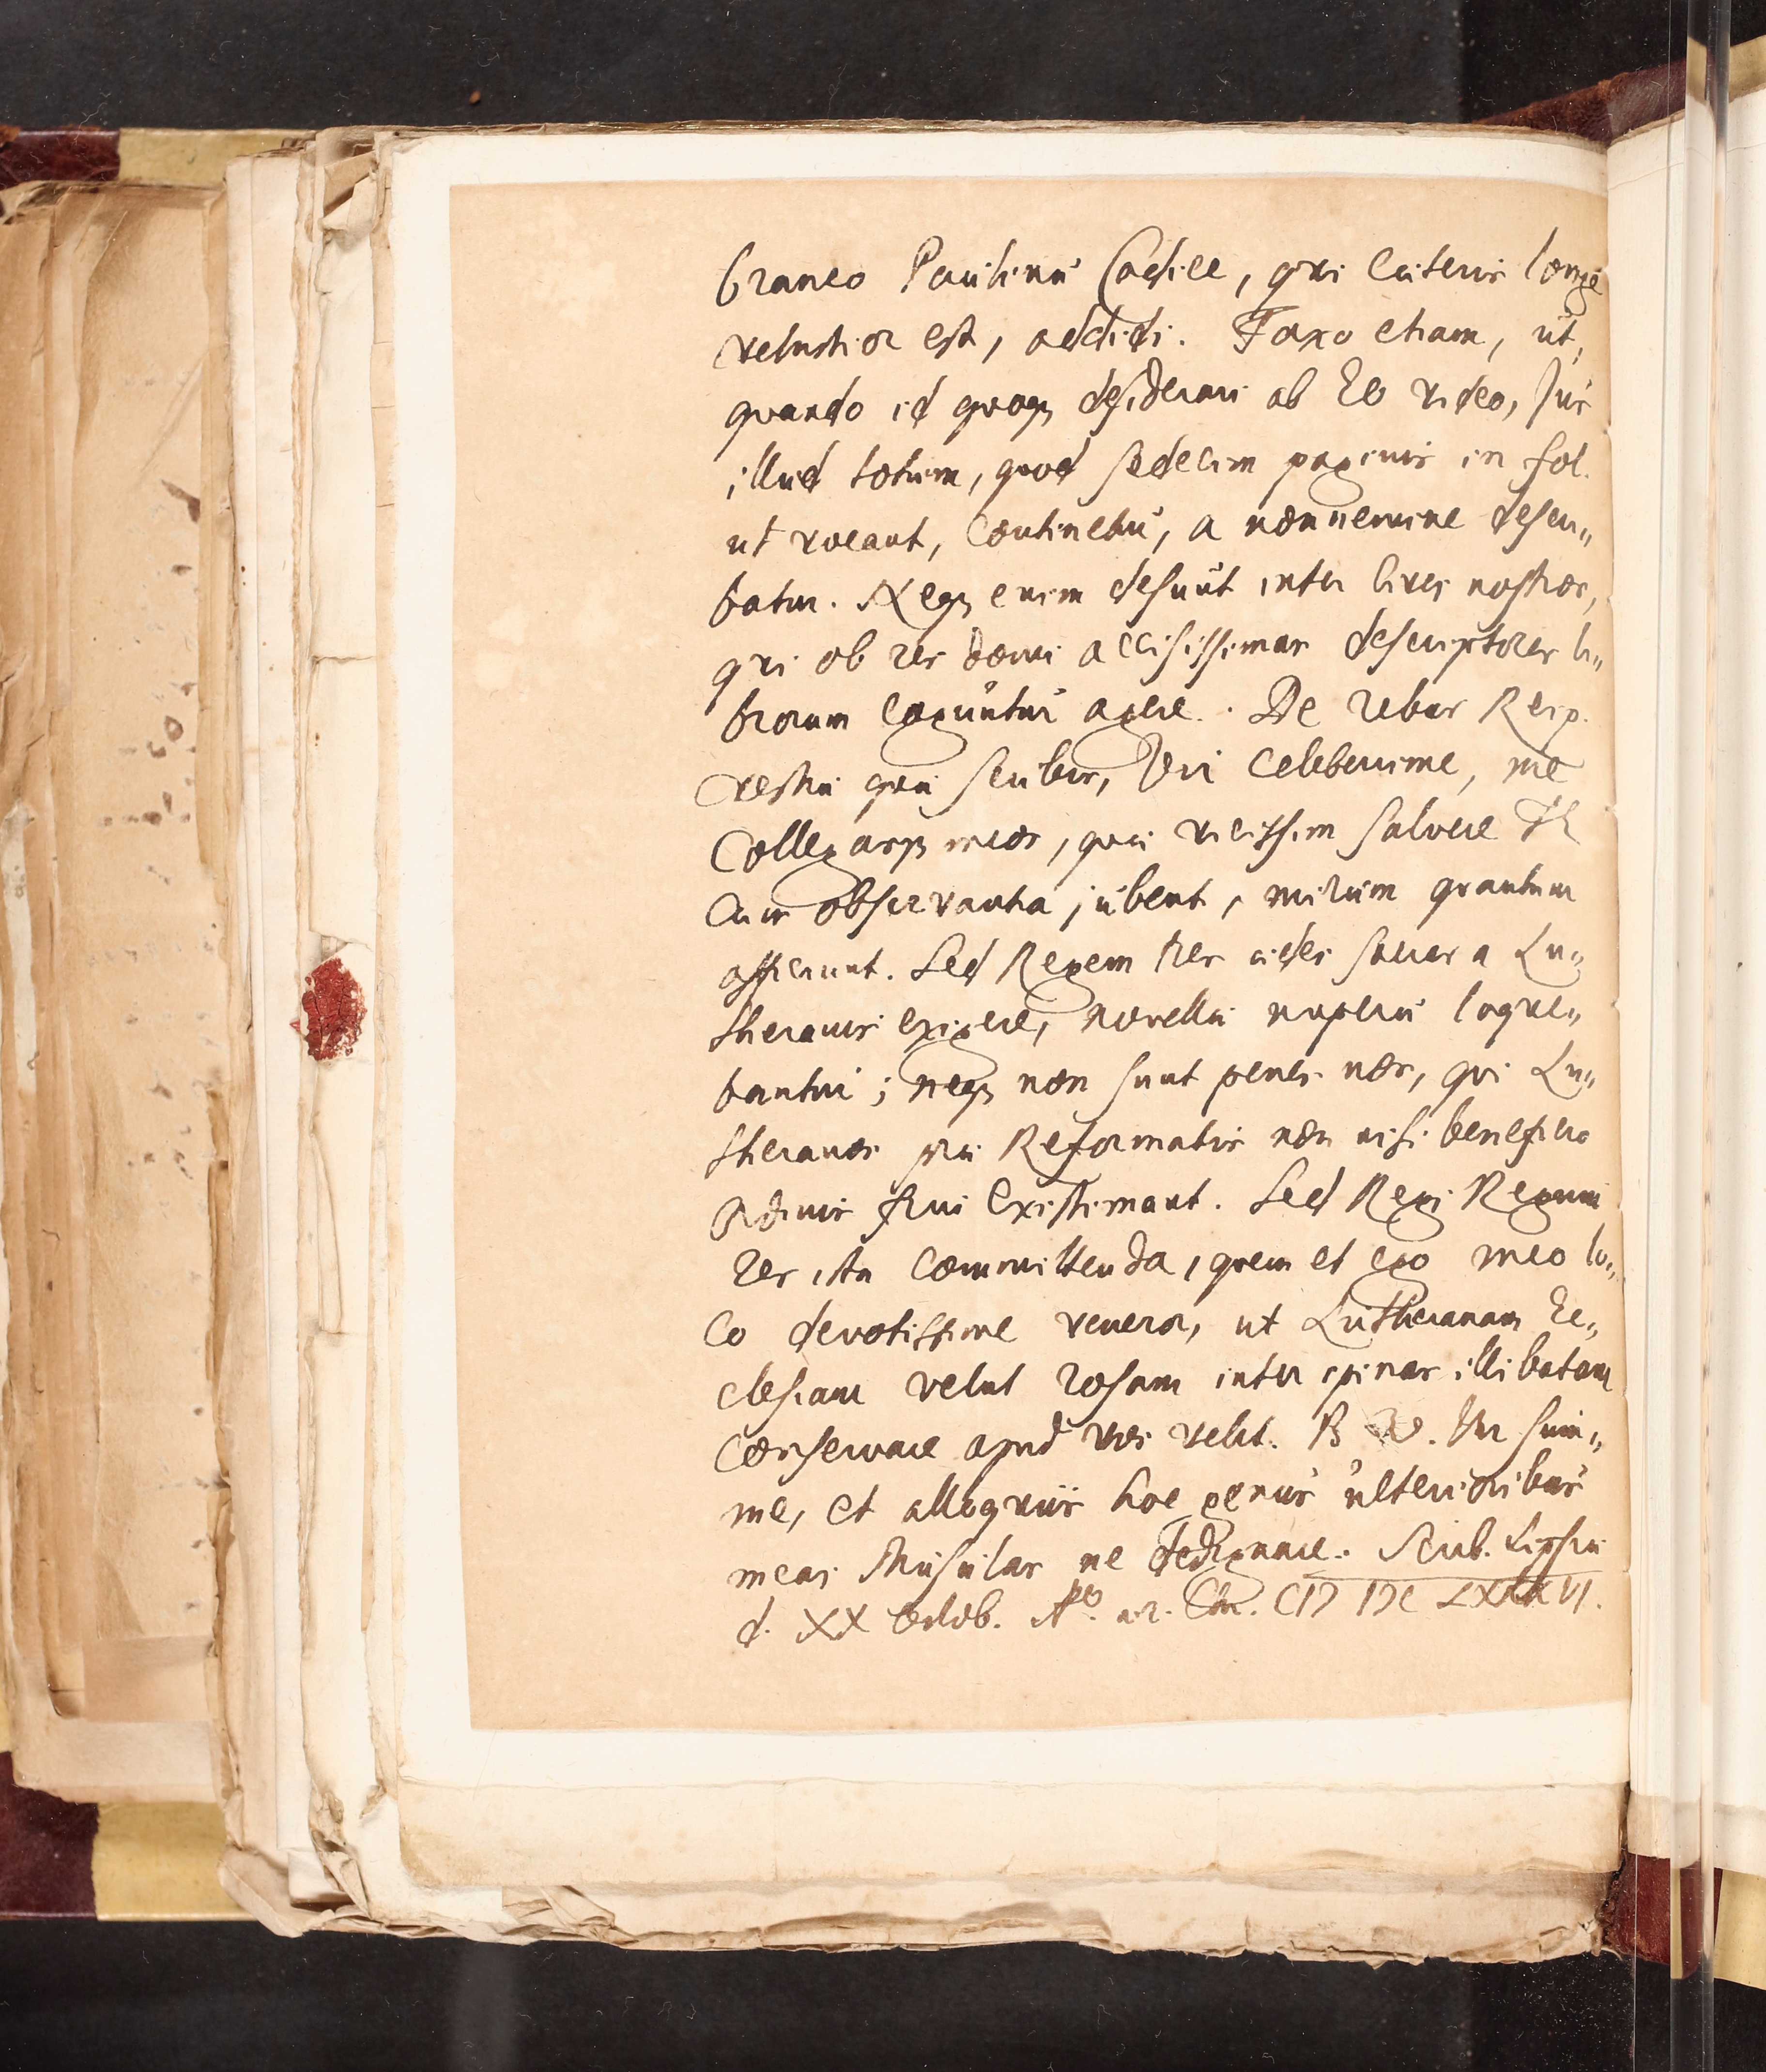 braneo Paulini Codice, qui caeteris longè
vetustior est, addidi. Faxo etiam, ut,
quando id quoq; desiderari ab Eo video, Jus
illud totum, quod sedecim paginis in fol.
ut vocant, continetur, a nonnemine descri„
batur. Neq; enim desunt inter cives nostros,
qui ob res domi accisissimas descriptores li„
brorum coguntur agere. De rebus Reip.
vestra qua scribis, Vir Celeberrime, me
Collegasq; meos, qui vicissim salvere Te
cum observantia jubent, mirum quantum
afficiunt. Sed Regem tres aedes sacras a Lu„
theranis exigere, novella nuperae loque„
bantur; neq; non sunt penes nos, qui Lu„
theranos prae Reformatis non nisi beneficio
ordinis frui existimant. Sed Regi Regum
res ista committenda, quem et ego meo lo„
co devotissime veneror, ut Lutheranam Ec„
clesiam velut rosam inter spinas illibatam
conservare apud vos velit. B V. Vir Sum„
me, et alloquiis hoc genus ulterioribus
meas Musulas ne dedignare. Scrib. Lipsiae
d. XX Octob. Aō. aer. Chr. CIƆ IƆC LXXXVI.